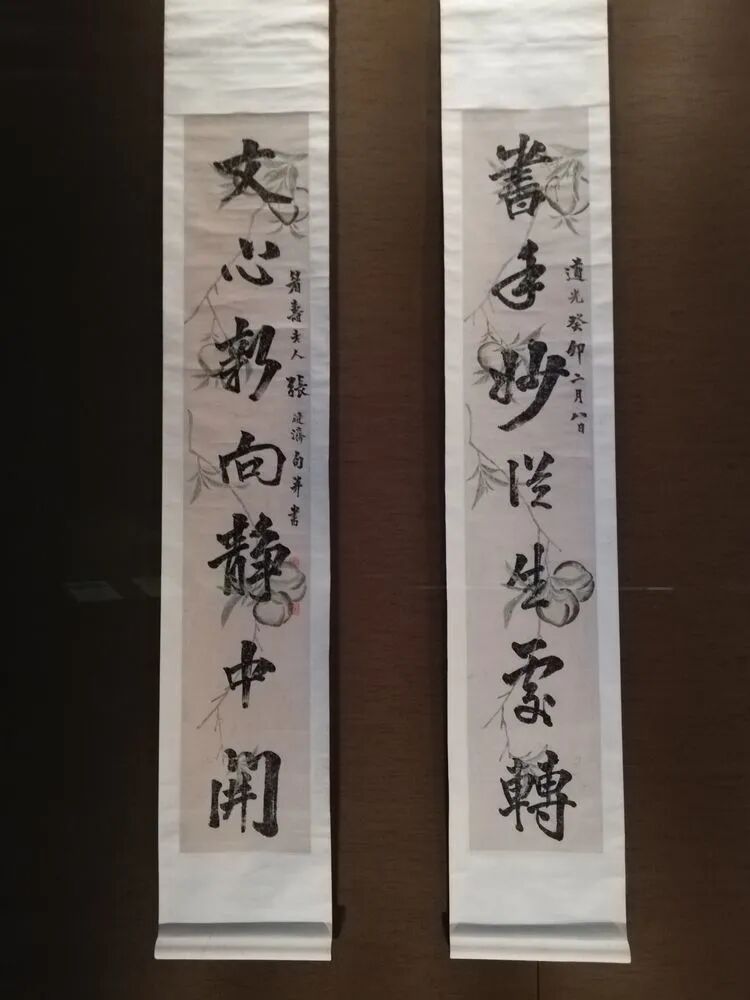 書手妙從生處轉
道光癸卯二月八日
文心新向靜中開
眉壽老人張廷濟句并書